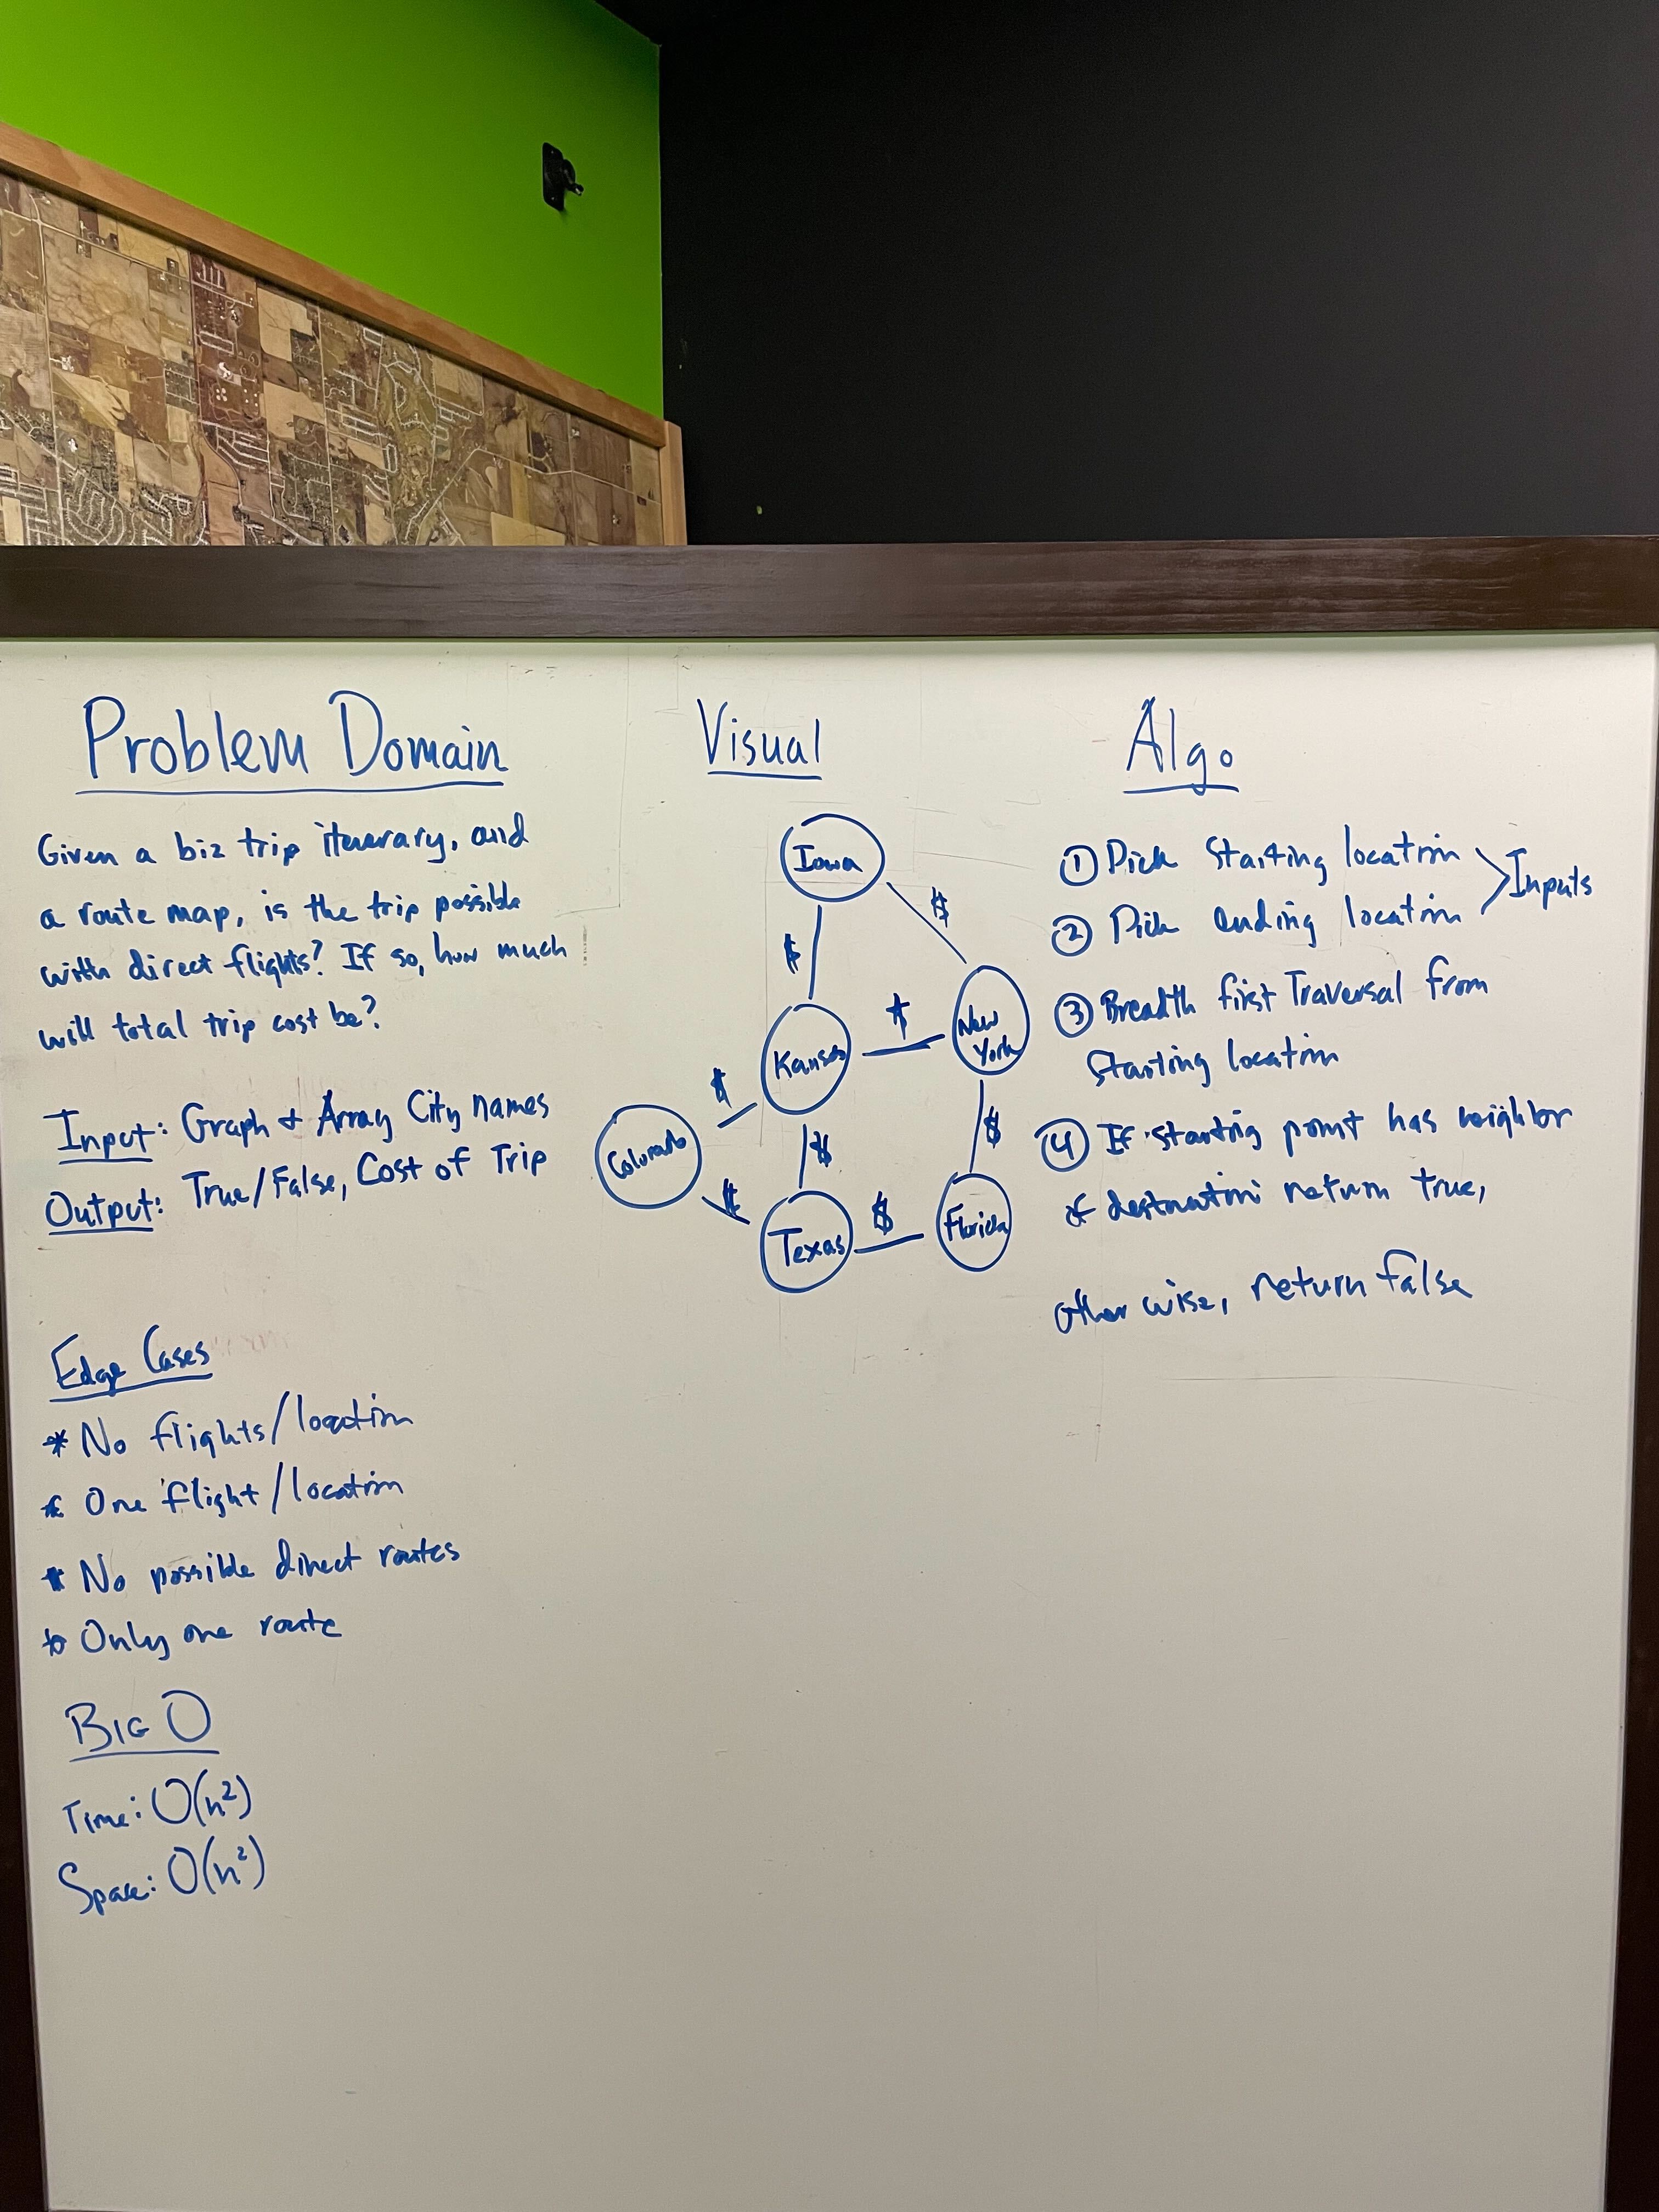 Problem Domain
Given a biz trip itenerary, and
a route map, is the trip possible
with direct flights? If so, how much
will total trip cost be?
Input: Graph & Array City names
Output: True/False, Cost of Trip
Edge Cases
* No flights/location
* One flight/location
* No possible direct routes
* Only one route
BIG O
Time: O(n²)
Space: O(n²)
Visual
Iowa
$
$
Kansas
$
New
York
$
Colorado
$
$
$
Texas
$
Florida
Algo
① Pick Starting location
② Pick ending location
Inputs
③ Breadth first Traversal from
Starting location
④ If starting point has neighbor
of destination return true,
other wise, return false